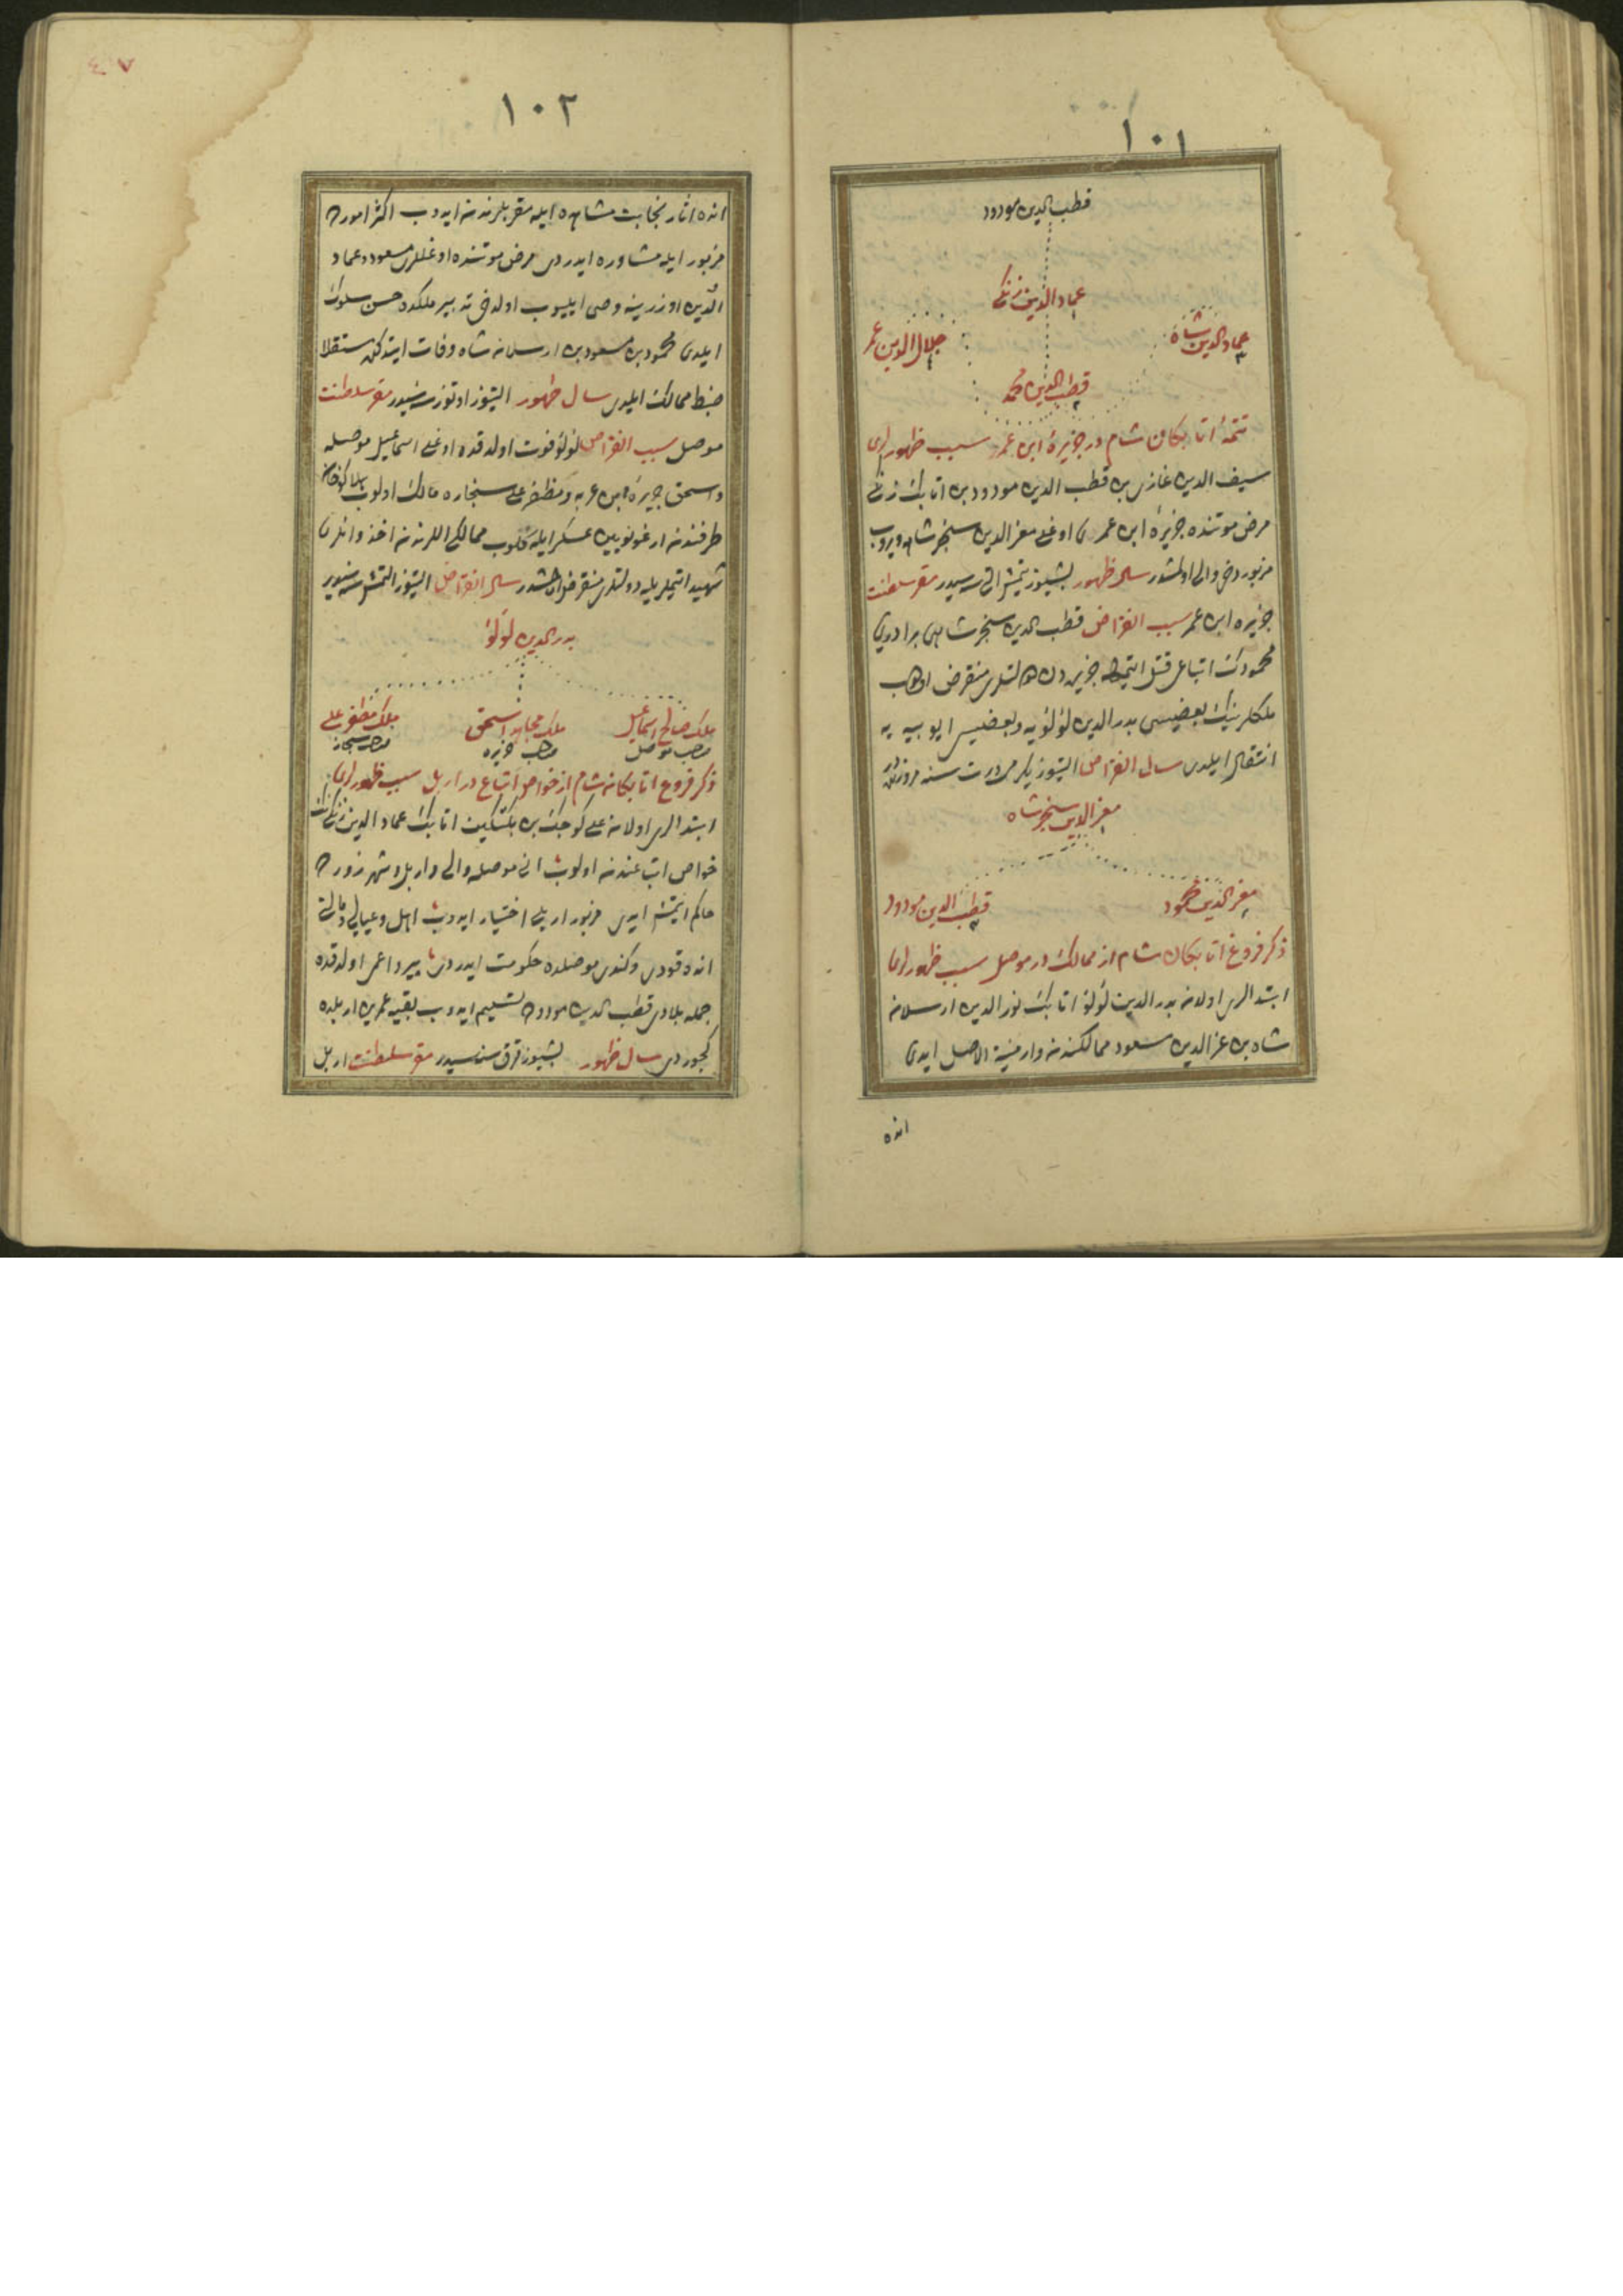 ١٠١
قطب الدین مودود
عماد الدین زنکی
عماد الدین شاه
جلال الدین عمر
قطب الدین محمد
تتمهٔ اتابکان شام در جزیرهٔ ابن عمر سبب ظهورلری
سیف الدین غازی بن قطب الدین مودود بن اتابک زنکی
مرض موتنده جزیرهٔ ابن عمری اوغلی معز الدین سنجر شاهه ویروب
مزبور دخی والی اولمشدر سال ظهور بشیوز یتمش التی سنه سیدر مقر سلطنت
جزیره ابن عمر سبب انقراض قطب الدین سنجر شاهی برادری
محمودک اتباعی قتل ایتمکله جزیره دن دولتلری منقرض اولوب
ملکلرینک بعضیسی بدر الدین لؤلؤیه وبعضیسی ایوبیه یه
انتقال ایلدی سال انقراض التیوز یکرمی درت سنه
معز الدین سنجر شاه
معز الدین محمود
قطب الدین مودود
ذکر فروغ اتابکان شام از ممالک در موصل سبب ظهورلری
ابتدالری اولان بدر الدین لؤلؤ اتابک نور الدین ارسلان
شاه بن عز الدین مسعود ممالکندن وارمنیة الاصل ایدی
انده
١٠٢
انده اثار نجابت مشاهده ایله مقربلرندن ایدوب اکثر امورده
مزبور ایله مشاوره ایدردی مرض موتنده اوغللری مسعود وعماد
الدین اوزرینه وصی ایلیوب اولدخی تدبیر ملکده حسن سلوک
ایلدی محمود بن مسعود بن ارسلان شاه وفات ایتدکده مستقلا
ضبط ممالک ایلدی سال ظهور التیوز اوتوز سنه سیدر مقر سلطنت
موصل سبب انقراض لؤلؤ فوت اولدقده اوغلی اسماعیل موصله
واسحق جزیرهٔ ابن عمره ومظفر علی سنجاره مالک اولوب هلاکو خان
طرفندن ارغونویین عسکر ایله کلوب ممالکی اللرندن اخذ وانلری
شهید ایتمکله دولتلری منقرض اولمشدر سال انقراض التیوز التمش سنه سیدر
بدر الدین لؤلؤ
ملک صالح اسماعیل
صاحب موصل
ملک مجاهد اسحق
صاحب جزیره
ملک مظفر علی
صاحب سنجار
ذکر فروع اتابکان شام از خواص اتباع در اربل سبب ظهورلری
ابتدالری اولان علی کوجک بن بکتکین اتابک عماد الدین زنکینک
خواص اتباعندن اولوب انی موصله والی واربل وشهرزوره
حاکم ایتمش ایدی مزبور اربلی اختیار ایدوب اهل وعیالی ومالی
انده قودی وکندی موصلده حکومت ایدردی پیر واعمی اولدقده
جمله بلادی قطب الدین مودوده تسلیم ایدوب بقیه عمرین اربلده
کچوردی سال ظهور بشیوز قرق سنه سیدر مقر سلطنت اربل